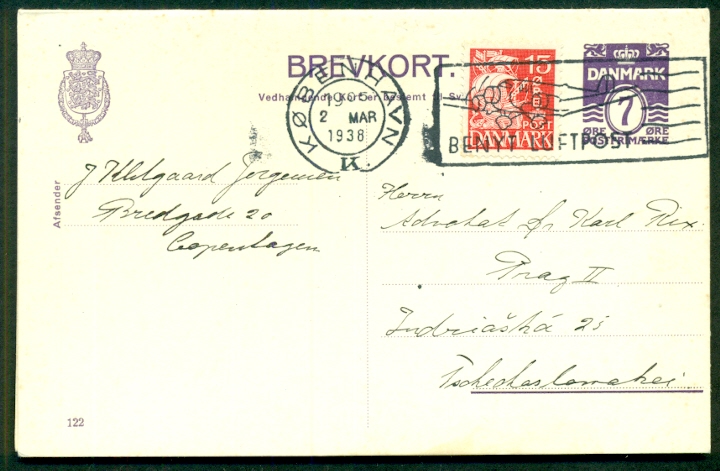 BREVKORT.
15
DANMARK
7
ØRE ØRE
POSTFRIMÆRKE
Vedhængende Kort er bestemt til Sv
KØBENHAVN
1900-5
2 MAR
1938
K
ØRE
POST
DANMARK
BENYT LUFTPOST
Afsender
Jørgensen
Bredgade 20
Copenhagen
Herrn
Advokat Dr Karl Rix.
Prag II
Jndrišská 25
Tschechoslowakei
122